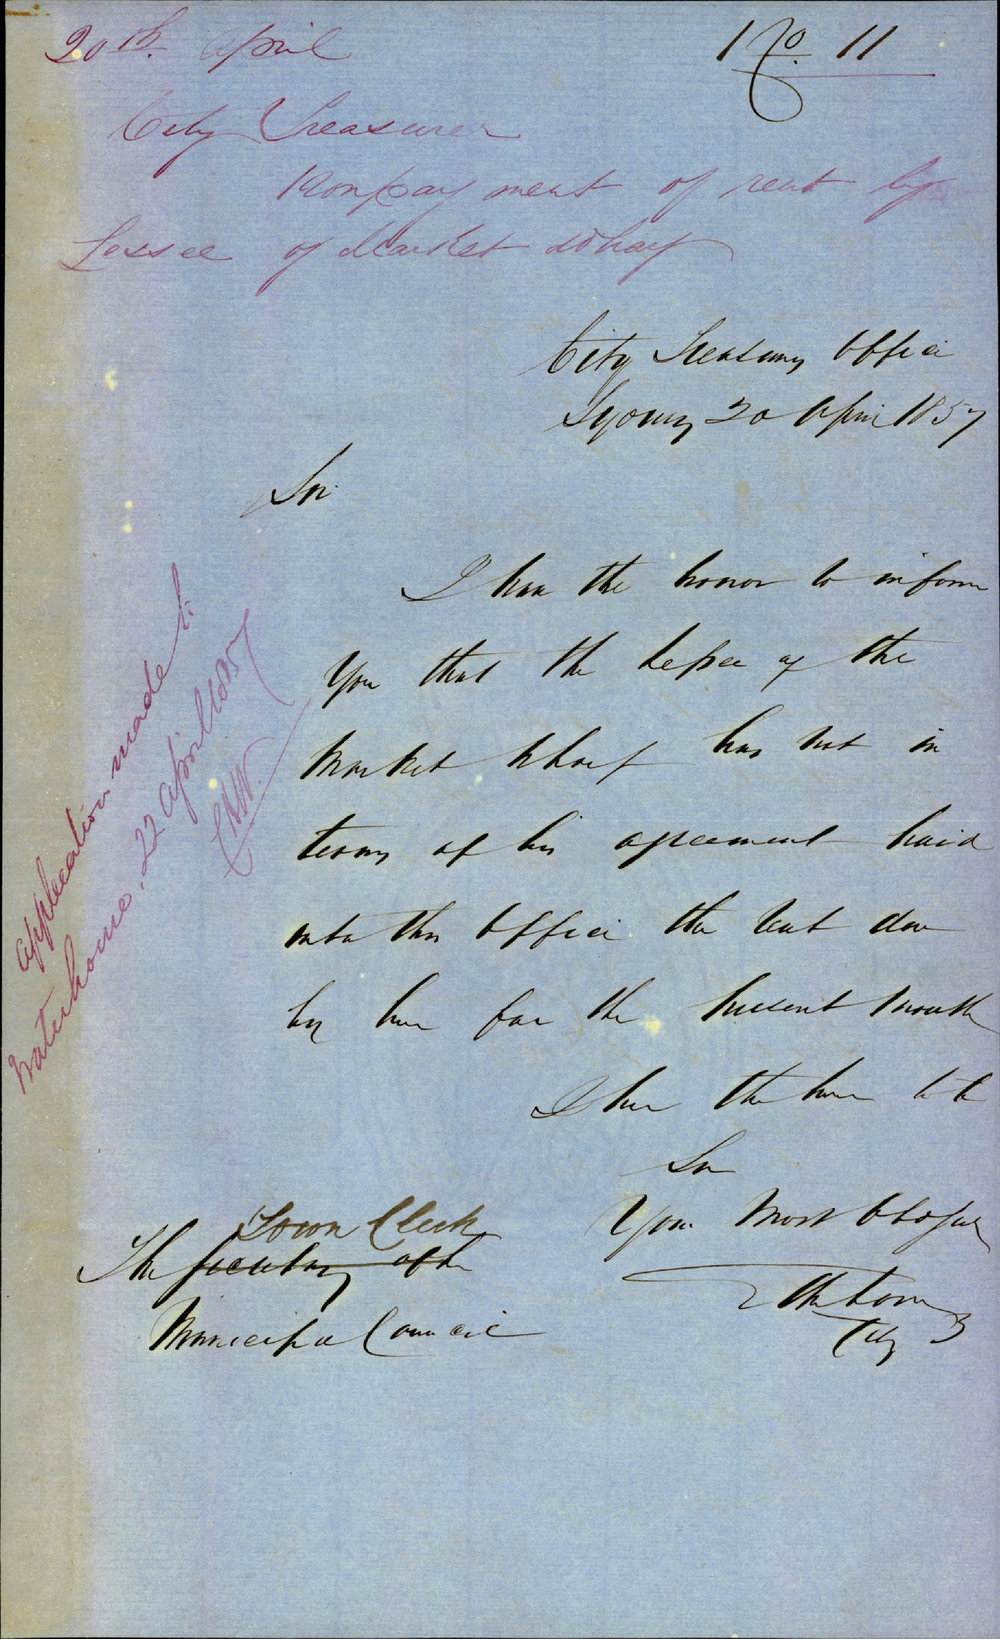 20th April
No. 11
City Treasurer
Nonpayment of rent by
Lessee of Market Wharf
City Treasury Office
Sydney 20 April 1857
Sir
I have the honor to inform
You that the Lessee of the
Market Wharf has not in
terms of his agreement paid
into this Office the Rent due
by him for the present Month
I have the honor to be
Sir
Your Most Obdt
City
Town Clerk
The Secretary of the
Municipal Council
Application made to
Waterhouse, 22 April 1857